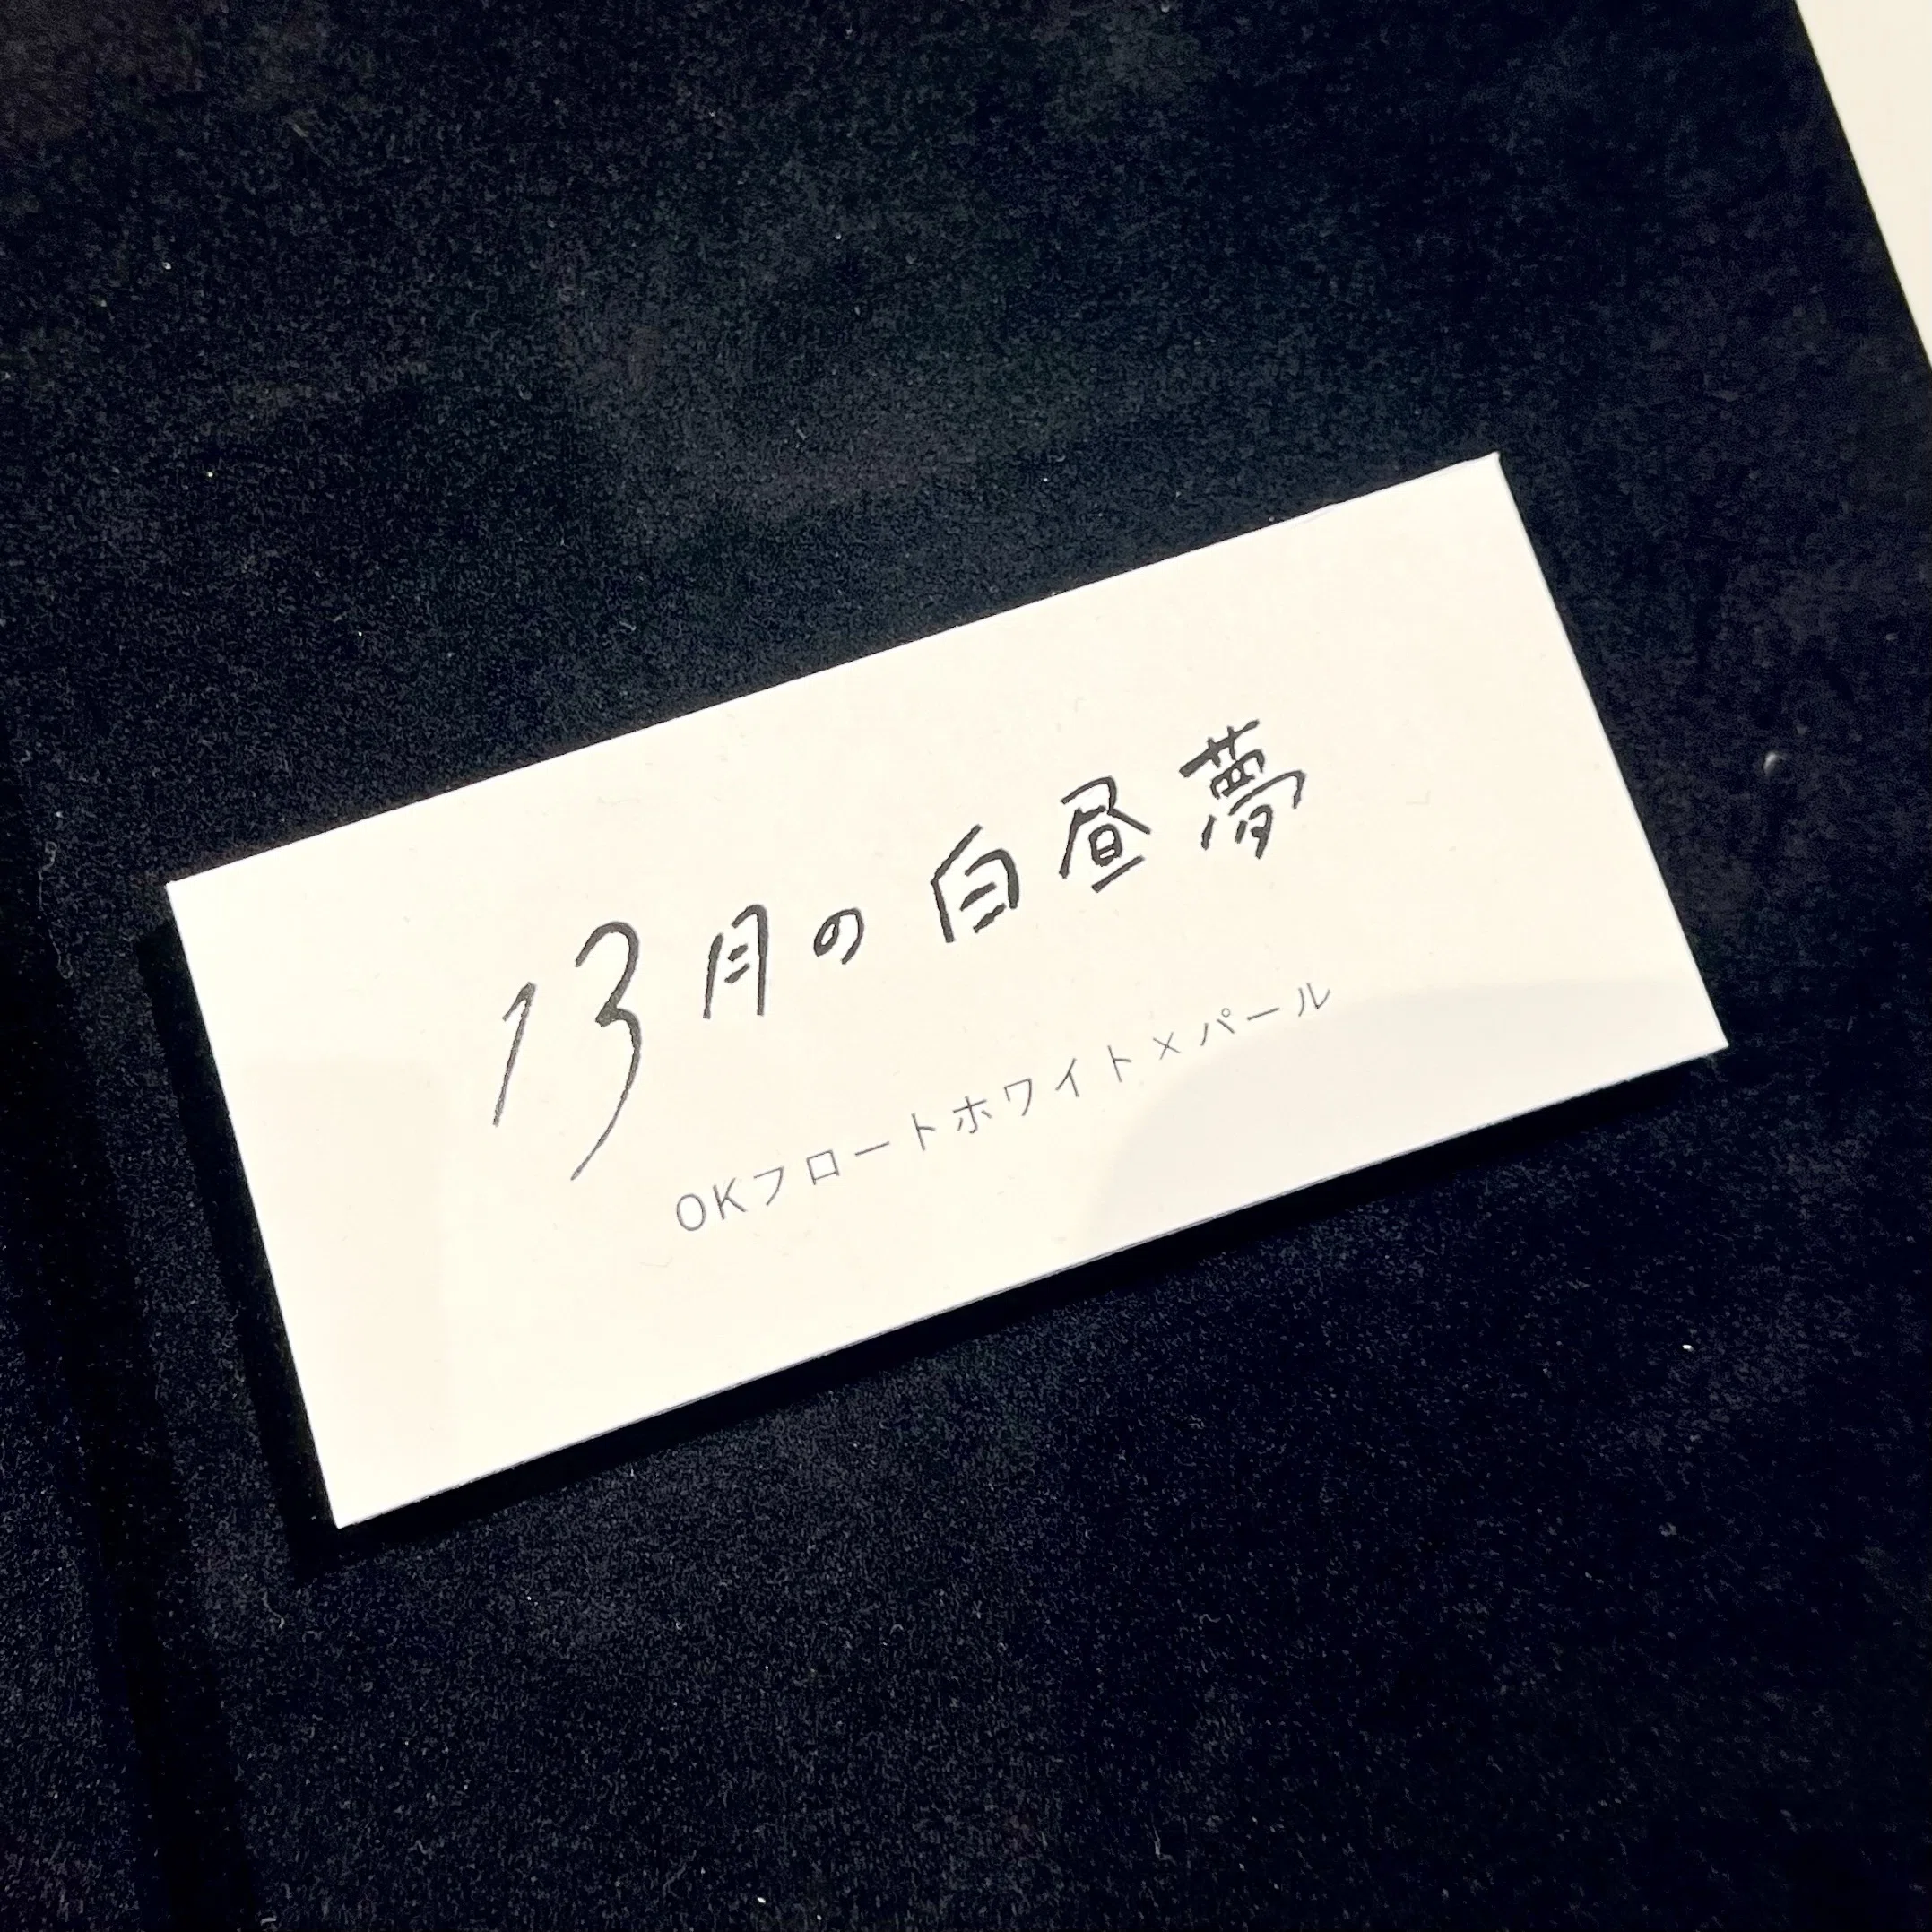 13月の白昼夢
OKフロートホワイト×パール